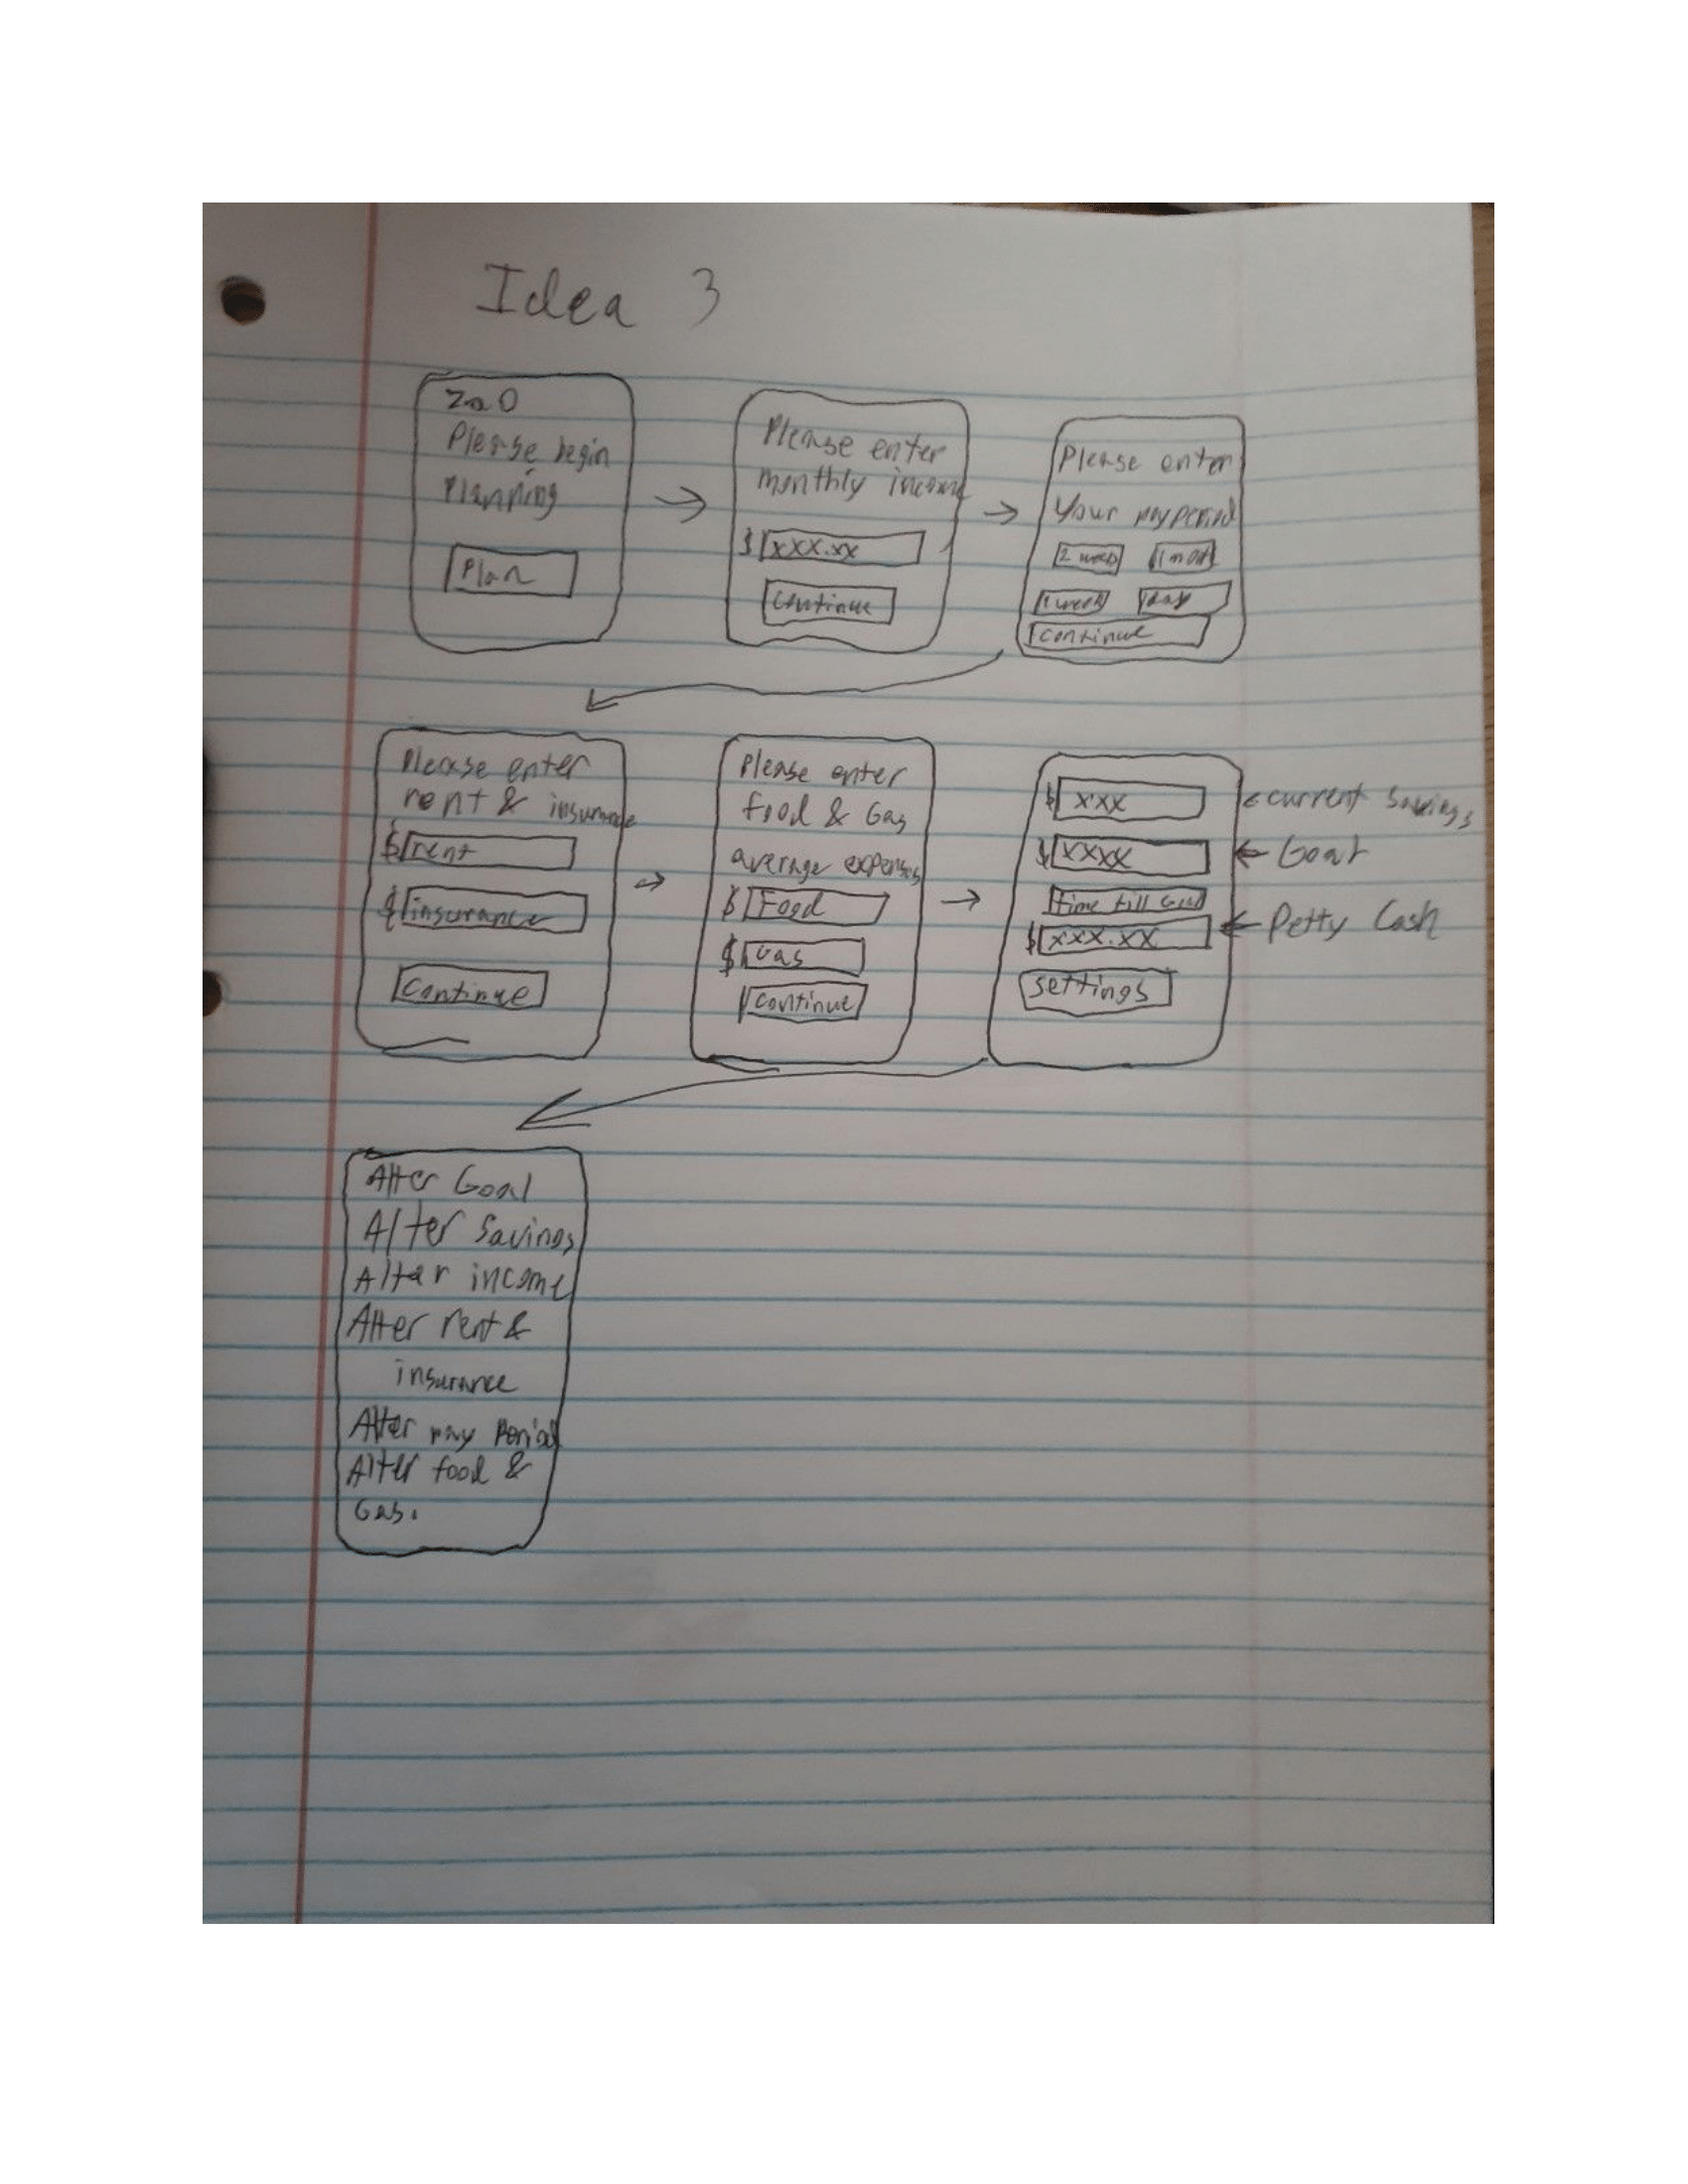 Idea 3
ZaO
Please begin
Planning
Plan
Please enter
monthly income
$ xxx.xx
Continue
Please enter
Your pay period
2 weeks 1 month
1 week day
continue
Please enter
rent & insurance
$ rent
$ insurance
Continue
Please enter
food & Gas
average expenses
$ Food
$ Gas
continue
$ xxx current Savings
$ xxxx Goal
time till Goal
$ xxx.xx Petty Cash
settings
Alter Goal
Alter Savings
Alter income
Alter rent &
insurance
Alter pay Period
Alter food &
Gas.